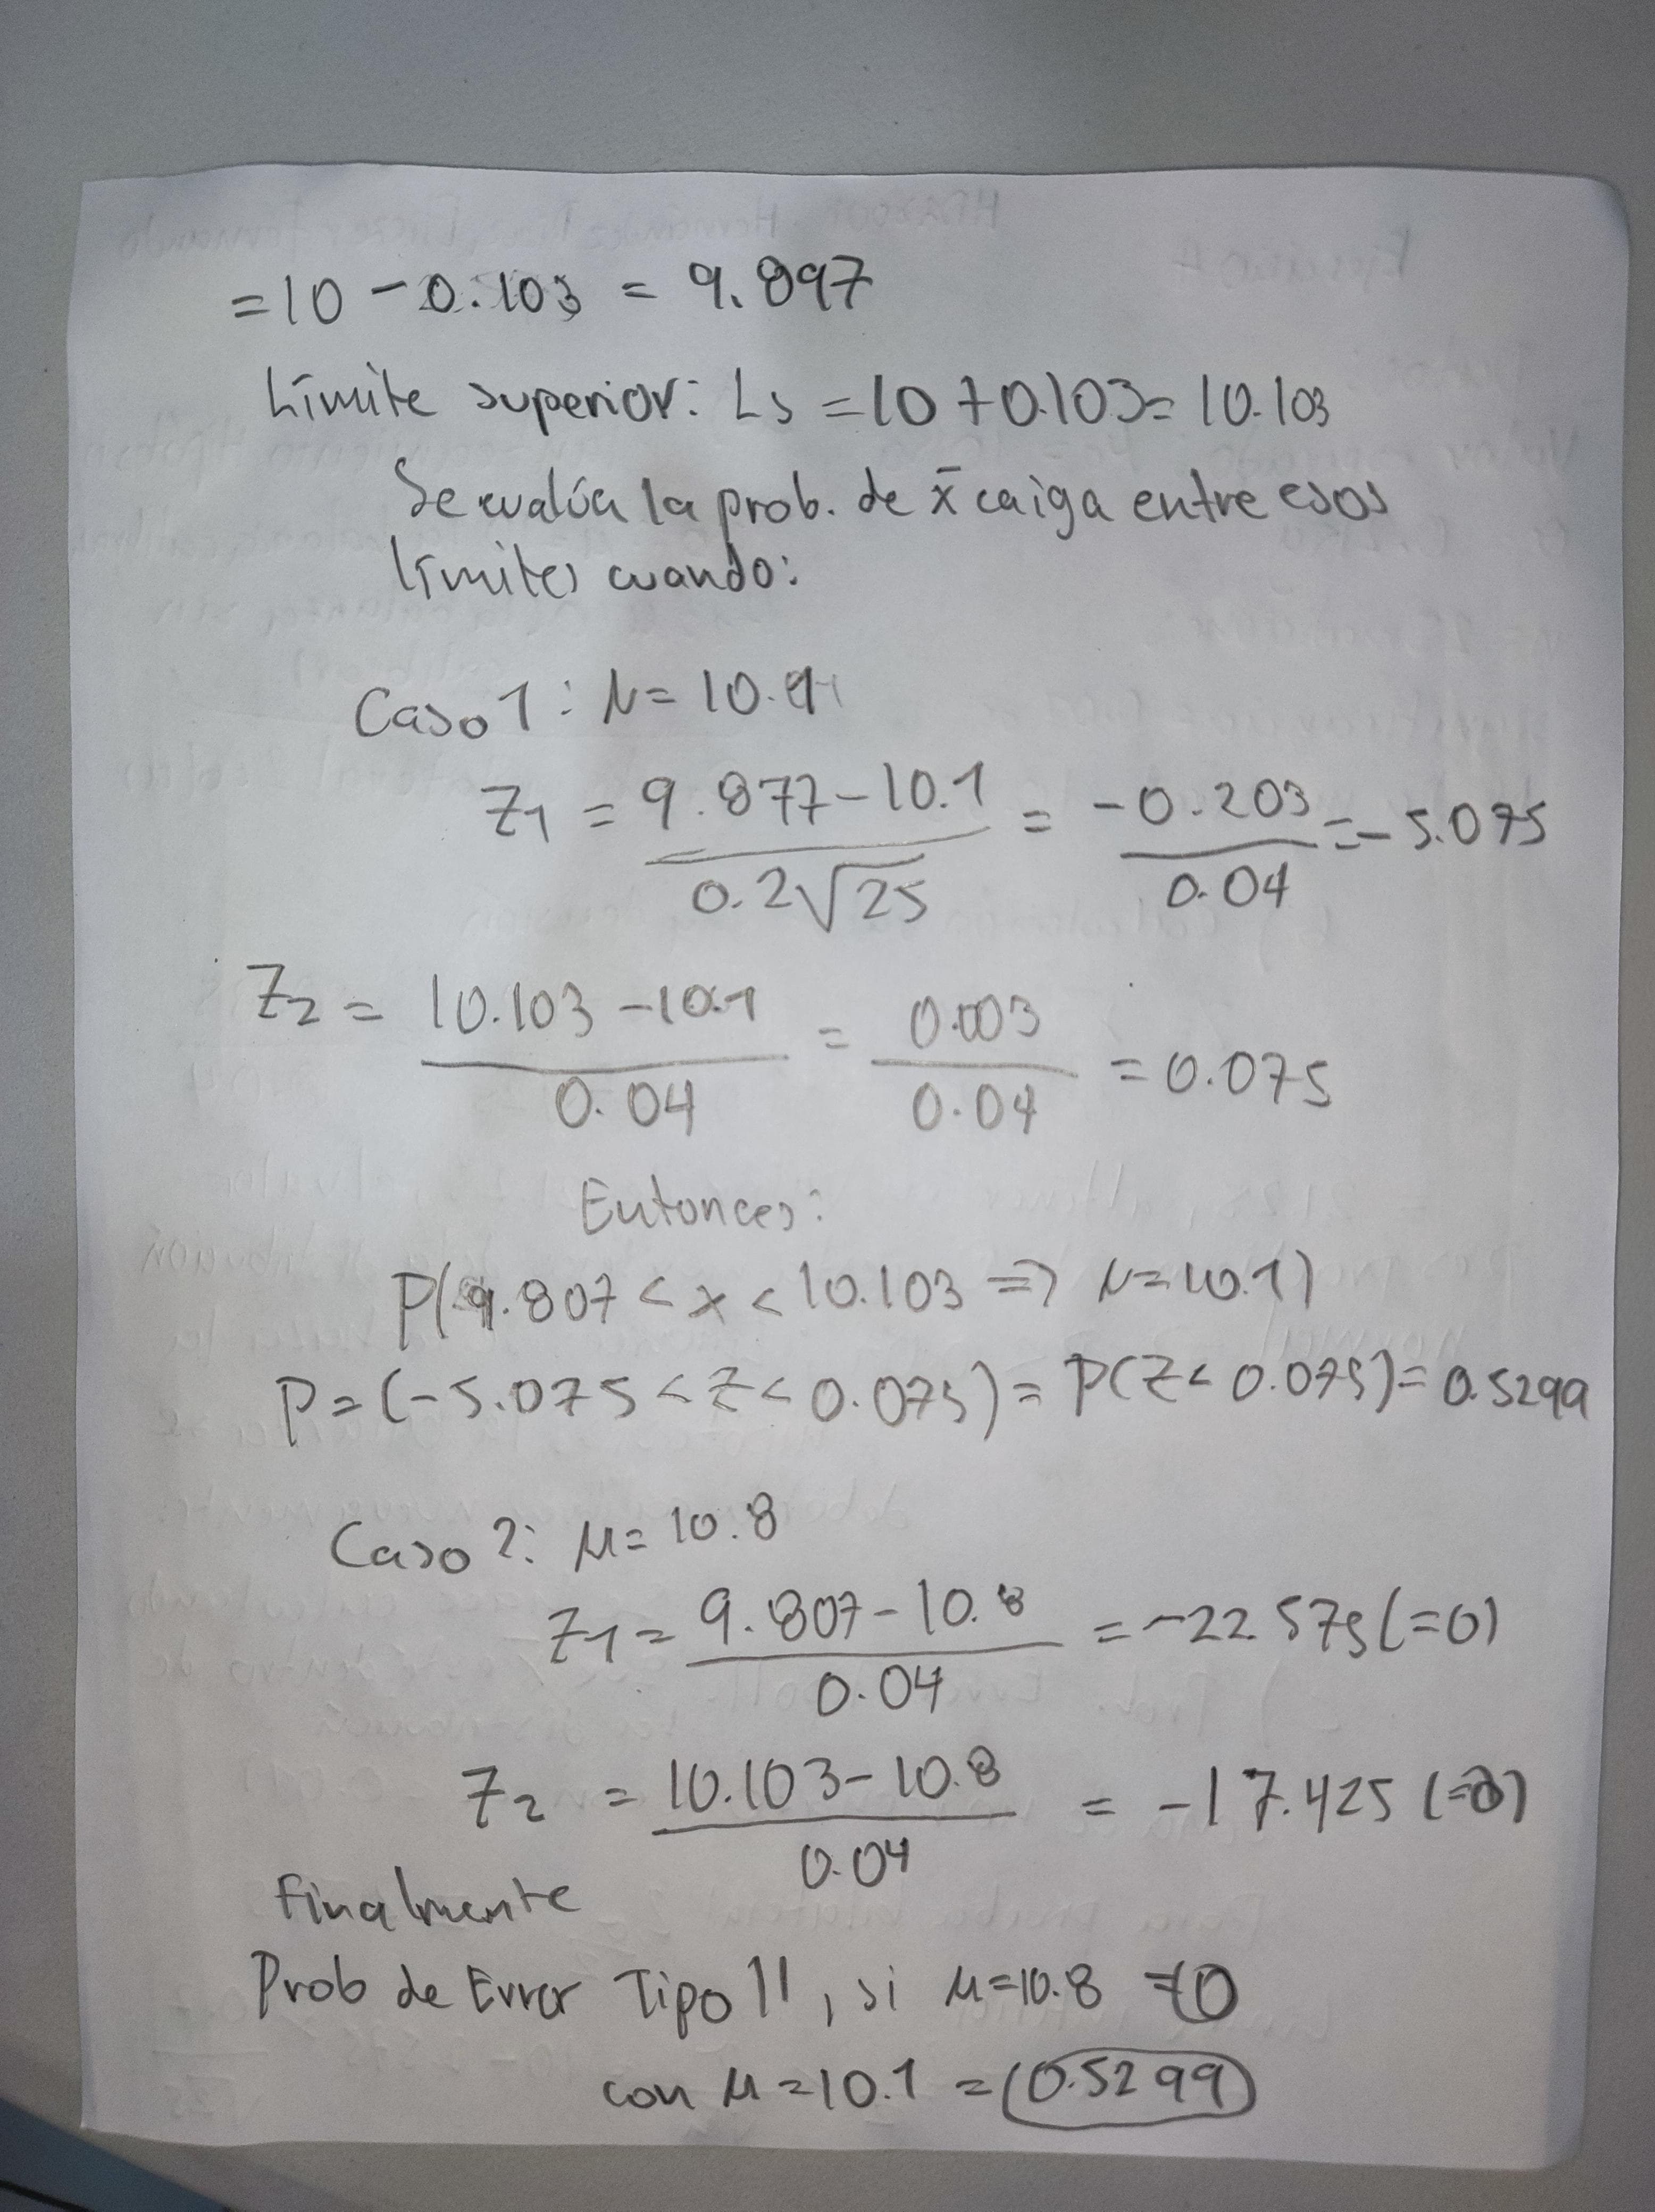 =10 - 0.103 = 9.897
Límite superior: Ls = 10 + 0.103 = 10.103
Se evalúa la prob. de x̄ caiga entre esos
límites cuando:
Caso 1: μ = 10.1
Z1 = (9.877 - 10.1) / (0.2√25) = -0.203 / 0.04 = -5.075
Z2 = (10.103 - 10.1) / 0.04 = 0.003 / 0.04 = 0.075
Entonces:
P(9.807 < x < 10.103 => μ = 10.1)
P = (-5.075 < Z < 0.075) = P(Z < 0.075) = 0.5299
Caso 2: μ = 10.8
Z1 = (9.807 - 10.8) / 0.04 = -22.575 (=0)
Z2 = (10.103 - 10.8) / 0.04 = -17.425 (=0)
Finalmente
Prob de Error Tipo II, si μ = 10.8 = 0
con μ = 10.1 = 0.5299